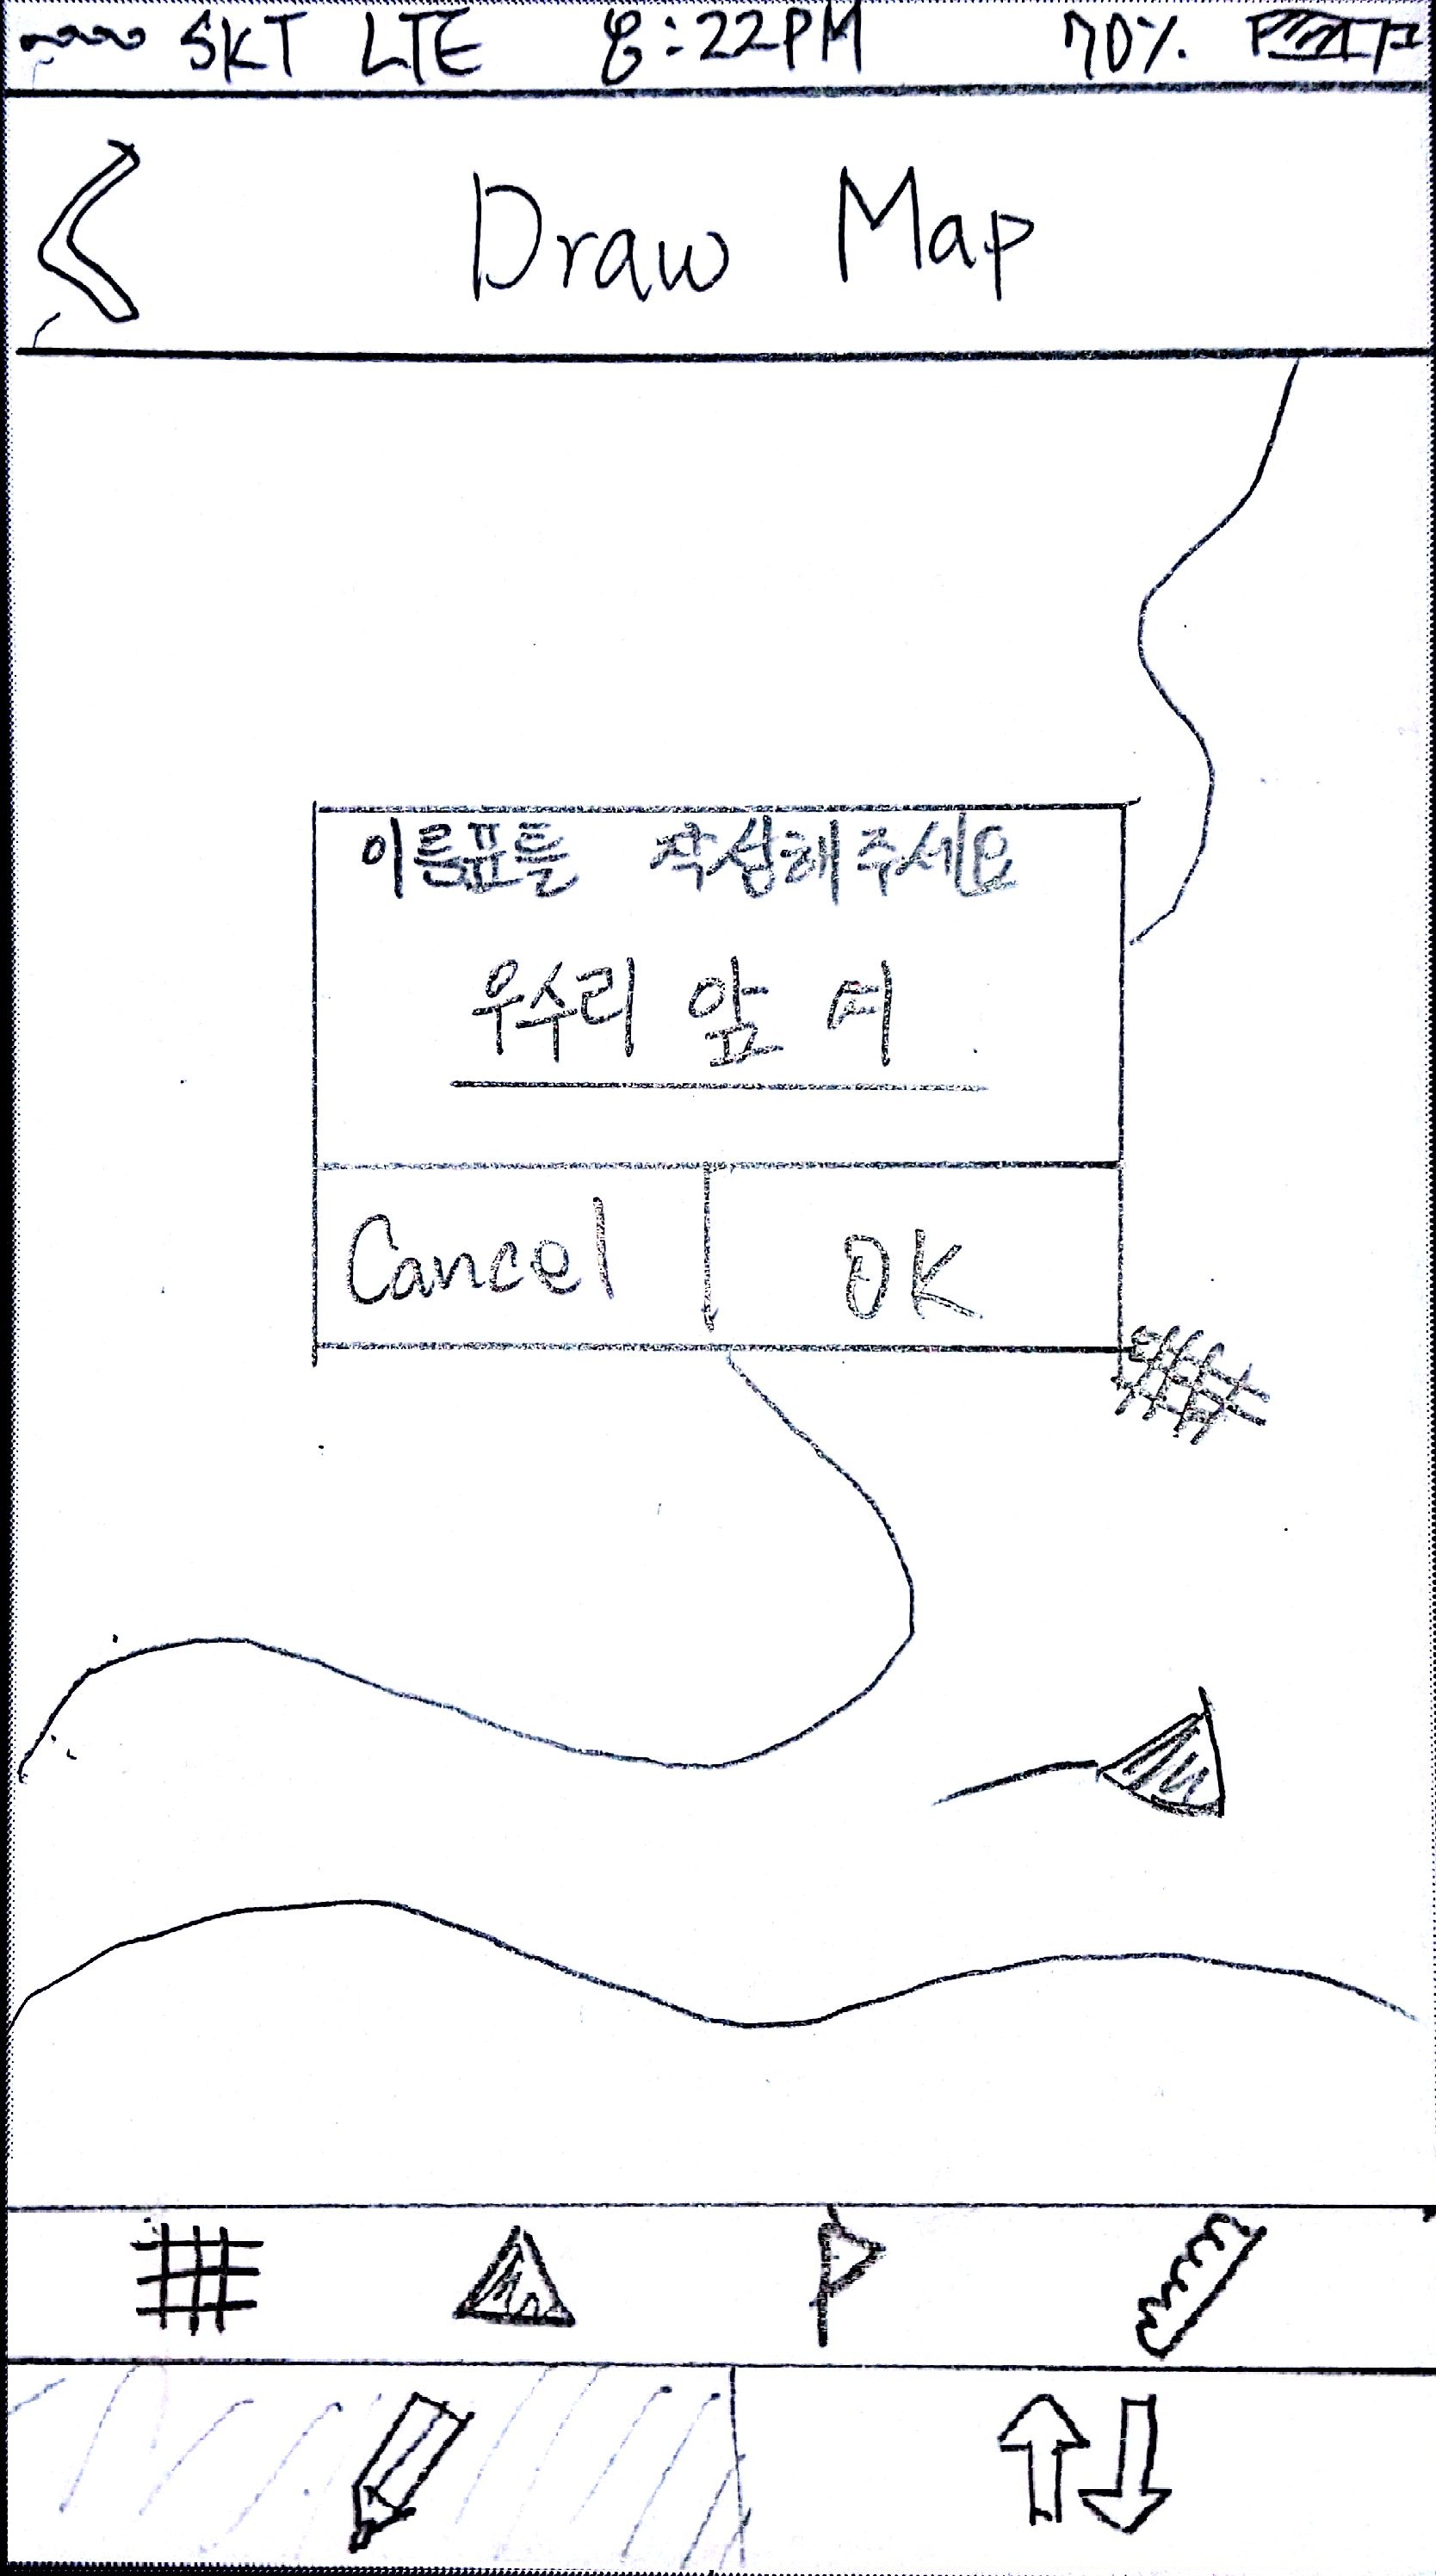 SKT LTE 8:22PM 70%
Draw Map
이름표를 작성해주세요
우수리 앞 여
Cancel OK